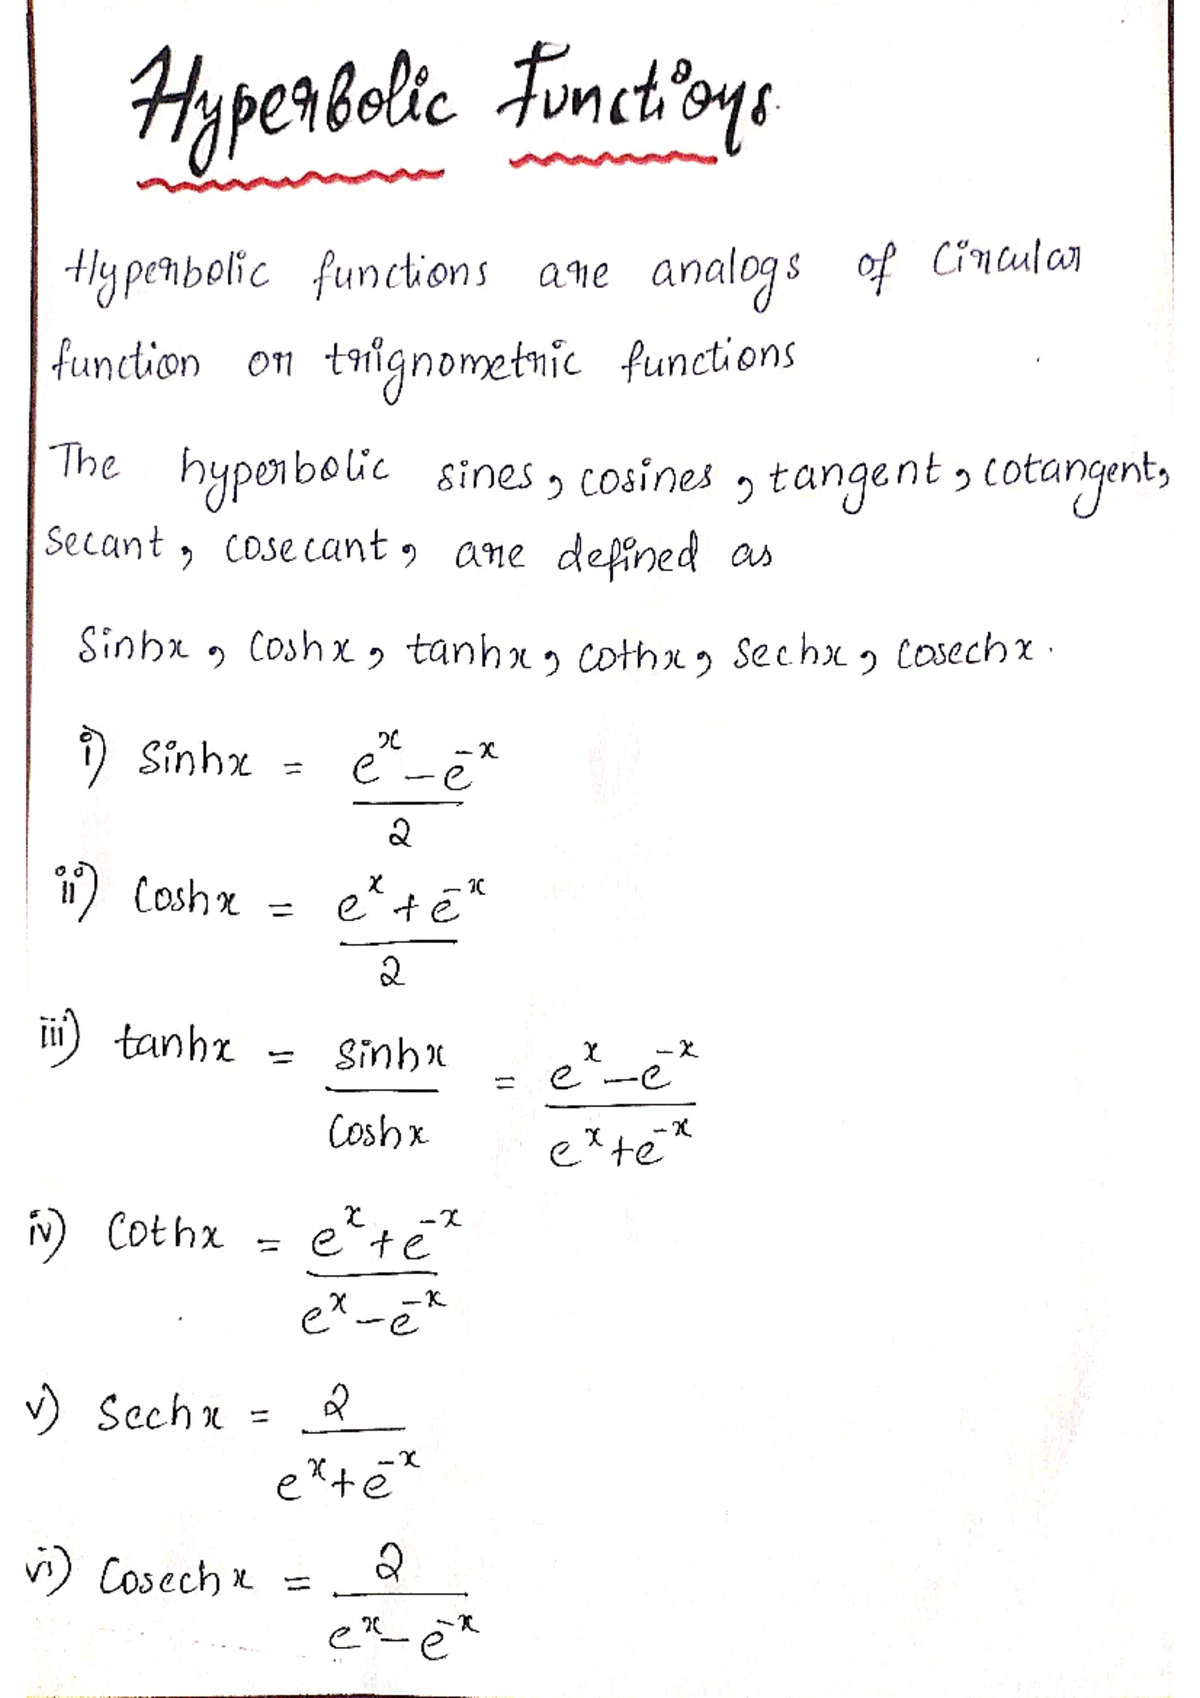 Hyperbolic Functions.
Hyperbolic functions are analogs of Circular
function or trignometric functions
The hyperbolic sines, cosines, tangent, cotangent,
secant, cosecant, are defined as
Sinhx, Coshx, tanhx, cothx, Sechx, Cosechx.
i) Sinhx = (e^x - e^-x)/2
ii) Coshx = (e^x + e^-x)/2
iii) tanhx = Sinhx/Coshx = (e^x - e^-x)/(e^x + e^-x)
iv) Cothx = (e^x + e^-x)/(e^x - e^-x)
v) Sechx = 2/(e^x + e^-x)
vi) Cosechx = 2/(e^x - e^-x)